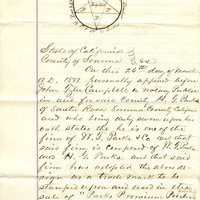 State of California }
County of Sonoma } ss
On this 26th day of March
A.D. 1887. personally appeared before
John Tyler Campbell a Notary Public
in and for said County H. G. Parks
of Santa Rosa Sonoma County California
and who being duly sworn upon his
oath states that he is one of the
firm of W. G. Parks & Co and that
said firm is composed of W. G. Parks
and H. G. Parks and that said
firm has adopted the above de-
sign as a trade mark to be
stamped upon and used in the
sale of "Parks Premium